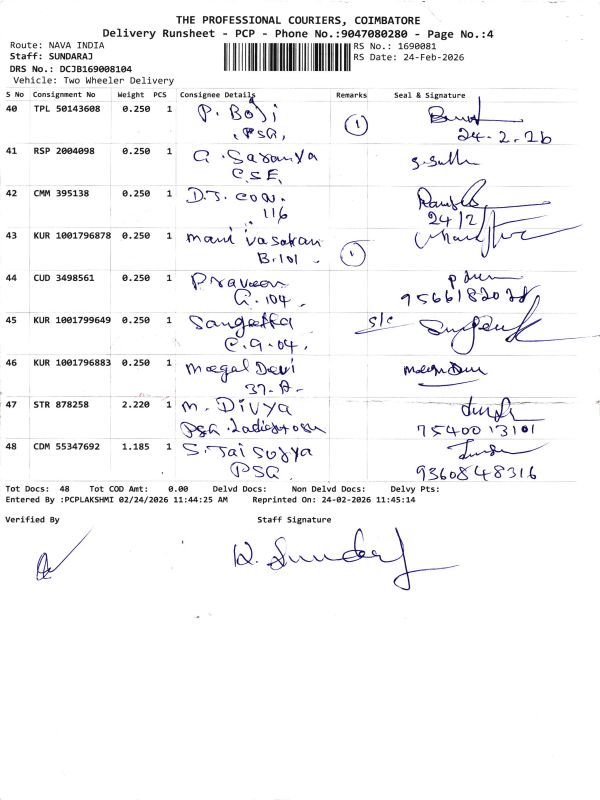 THE PROFESSIONAL COURIERS, COIMBATORE
Delivery Runsheet - PCP - Phone No.:9047080280 - Page No.:4
Route: NAVA INDIA
RS No.: 1690081
Staff: SUNDARAJ
RS Date: 24-Feb-2026
DRS No.: DCJB169008104
Vehicle: Two Wheeler Delivery
S No Consignment No Weight PCS Consignee Details Remarks Seal & Signature
40 TPL 50143608 0.250 1 P. Boji 1
PSG, 24-2-26
41 RSP 2004098 0.250 1 G. Saranya
C.S.E,
42 CMM 395138 0.250 1 D.J. CON.
116 24/2
43 KUR 1001796878 0.250 1 Mani Vasakan
B.101 1
44 CUD 3498561 0.250 1 Praveen
G.104
45 KUR 1001799649 0.250 1 Sangeetha S/C
C.9.04.
46 KUR 1001796883 0.250 1 Meegal Devi
37-A-
47 STR 878258 2.220 1 M. Divya
PSG. 7540013101
48 CDM 55347692 1.185 1 S. Jai Surya
PSG. 9360848316
Tot Docs: 48 Tot COD Amt: 0.00 Delvd Docs: Non Delvd Docs: Delvy Pts:
Entered By :PCPLAKSHMI 02/24/2026 11:44:25 AM Reprinted On: 24-02-2026 11:45:14
Verified By Staff Signature